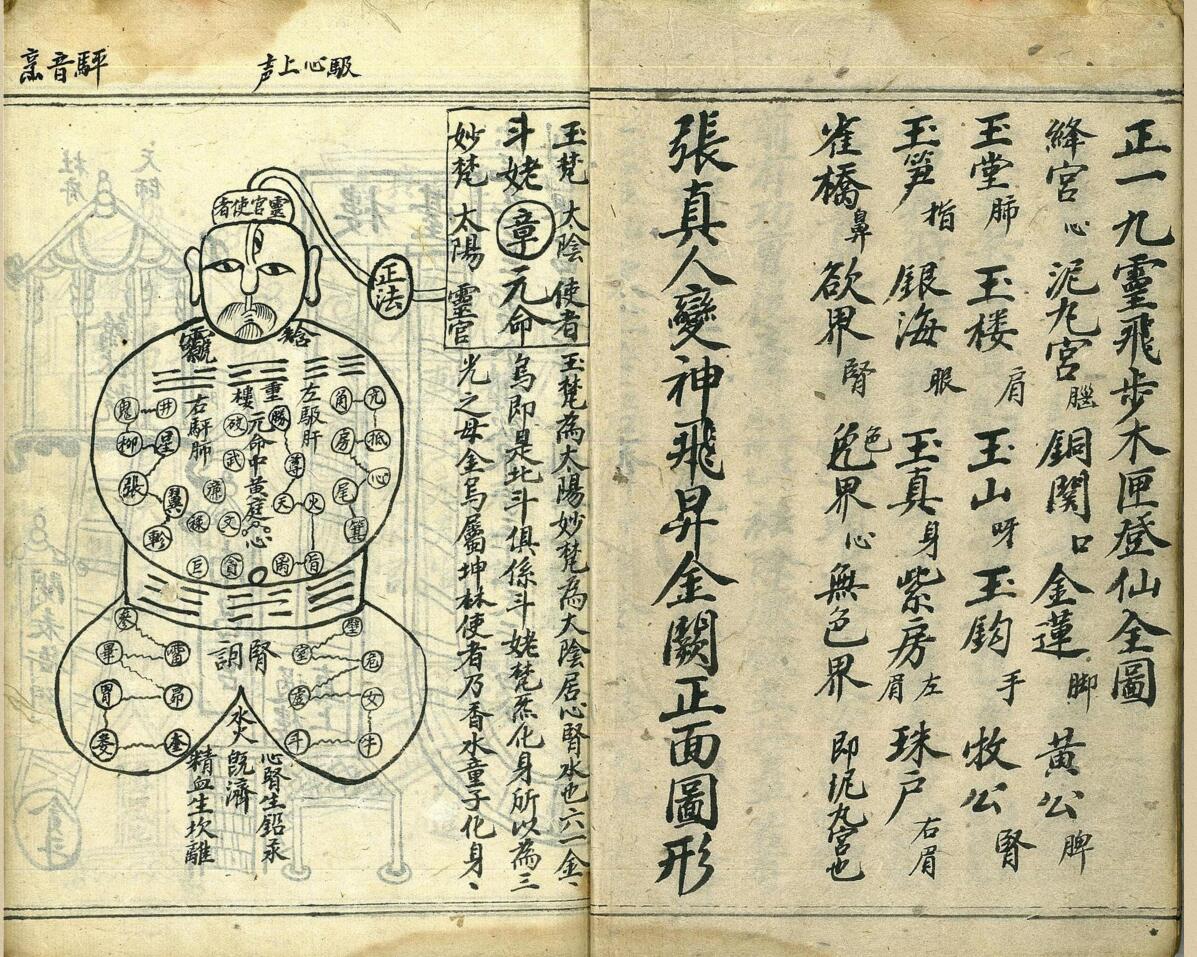 正一九靈飛步木匣登仙全圖
絳宮 心 泥丸宮 腦 銅関 口 金蓮 脚 黃公 脾
玉堂 肺 玉楼 肩 玉山 呀 玉鈎 手 牧公 腎
玉笋 指 銀海 眼 玉真 身 紫房 左眉 珠户 右眉
雀橋 鼻 欲界 腎 色界 心 無色界 即坭丸宮也
色
張真人變神飛昇金闕正面圖形
玉梵 太陰 使者
斗姥 章 元命
妙梵 太陽 靈官
玉梵為太陽妙梵為太陰居心腎水也六一金、
烏即是北斗俱係斗姥梵炁化身所以為三
光之母金烏屬坤林使者乃香水童子化身、
声上心馭
烹音駍
靈官使者
正法
左馭肝
重楼
元命中黃庭
心
右駍肺
亢
角
抵
房
心
尾
箕
井
鬼
星
柳
張
翼
軫
尊
天
火
武
廉
文
巨
貪
参
觜
畢
昴
胃
奎
婁
壁
室
危
虛
女
斗
牛
腎
水火
既濟
心腎生鉛汞
精血生坎離